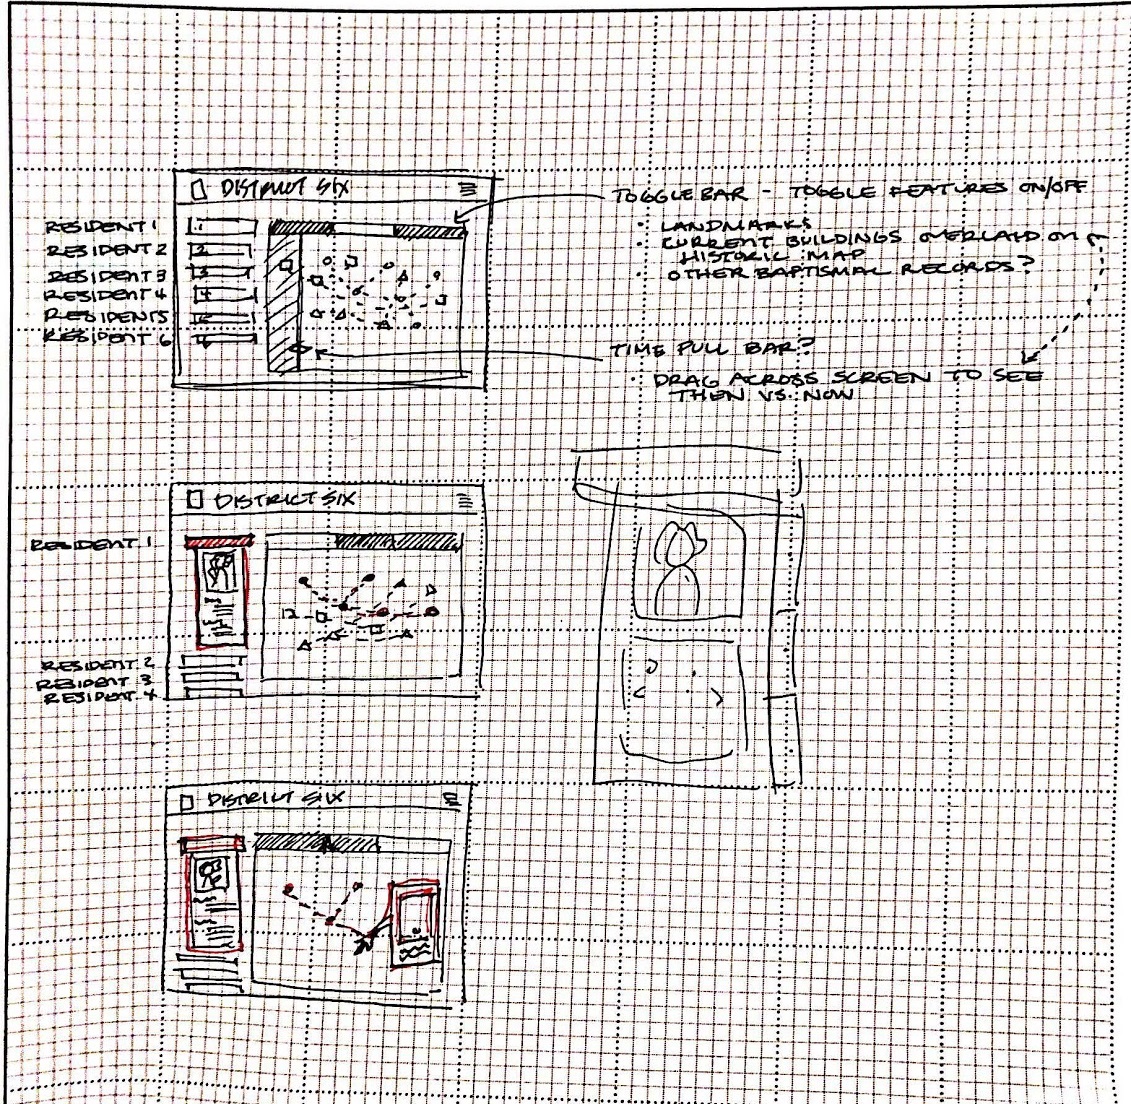 DISTRICT SIX
RESIDENT 1
RESIDENT 2
RESIDENT 3
RESIDENT 4
RESIDENT 5
RESIDENT 6
1
2
3
4
TOGGLE BAR - TOGGLE FEATURES ON/OFF
· LANDMARKS
· CURRENT BUILDINGS OVERLAID ON
HISTORIC MAP
· OTHER BAPTISMAL RECORDS?
TIME PULL BAR?
· DRAG ACROSS SCREEN TO SEE
THEN VS. NOW
DISTRICT SIX
RESIDENT 1
RESIDENT 2
RESIDENT 3
RESIDENT 4
DISTRICT SIX